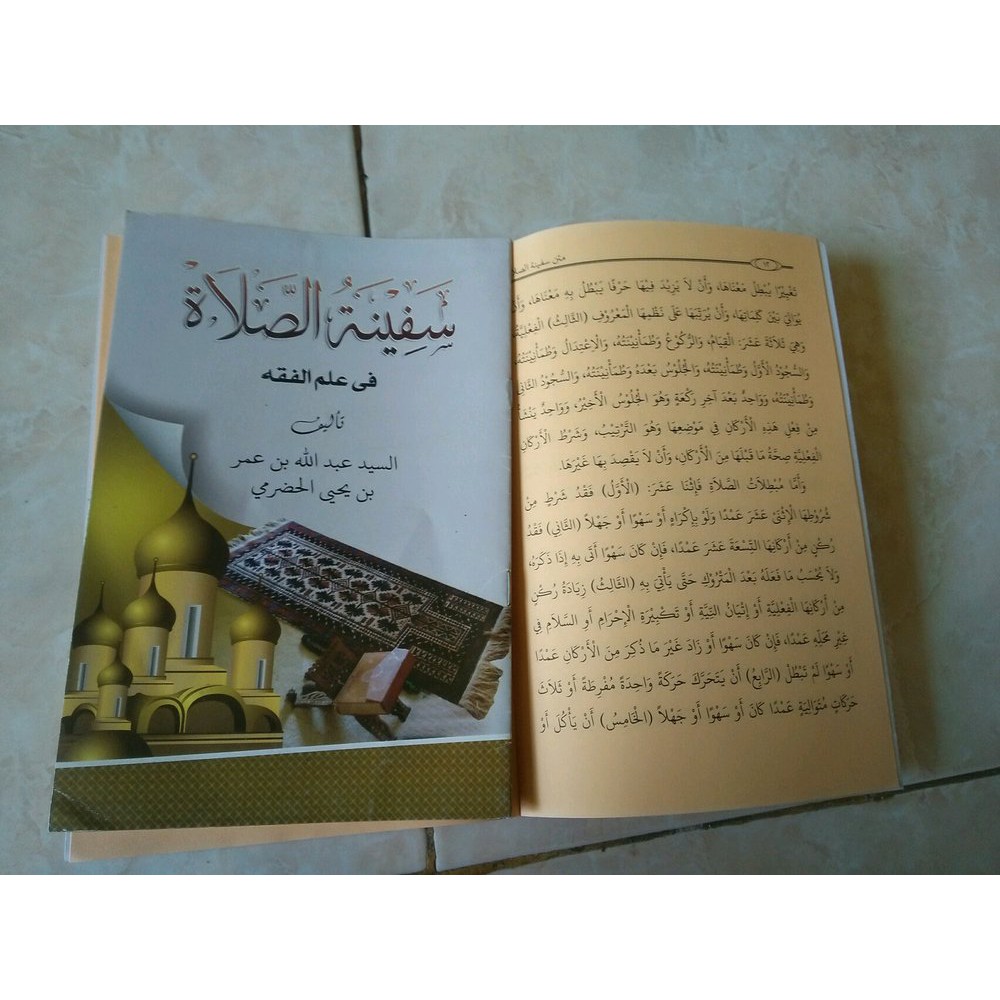 سَفِيْنَةُ الصَّلَاةِ
فى علم الفقه
تأليف
السيد عبد الله بن عمر
بن يحيى الحضرمي
متن سفينة الصلا
١٣
تَغْيِيْرًا يُبْطِلُ مَعْنَاهَا، وَأَنْ لَا يَزِيْدَ فِيْهَا حَرْفًا يَبْطُلُ بِهِ مَعْنَاهَا، وَأَنْ
يُوَالِيَ بَيْنَ كَلِمَاتِهَا، وَأَنْ يُرَتِّبَهَا عَلَى نَظْمِهَا الْمَعْرُوْفِ (الثَّالِثُ) الْفِعْلِيَّةُ
وَهِيَ ثَلَاثَةَ عَشَرَ: الْقِيَامُ، وَالرُّكُوْعُ وَطُمَأْنِيْنَتُهُ، وَالْاِعْتِدَالُ وَطُمَأْنِيْنَتُهُ،
وَالسُّجُوْدُ الْأَوَّلُ وَطُمَأْنِيْنَتُهُ، وَالْجُلُوْسُ بَعْدَهُ وَطُمَأْنِيْنَتُهُ، وَالسُّجُوْدُ الثَّانِي
وَطُمَأْنِيْنَتُهُ، وَوَاحِدٌ بَعْدَ آخِرِ رَكْعَةٍ وَهُوَ الْجُلُوْسُ الْأَخِيْرُ، وَوَاحِدٌ يَنْشَأُ
مِنْ فِعْلِ هَذِهِ الْأَرْكَانِ فِي مَوْضِعِهَا وَهُوَ التَّرْتِيْبُ، وَشَرْطُ الْأَرْكَانِ
الْفِعْلِيَّةِ صِحَّةُ مَا قَبْلَهَا مِنَ الْأَرْكَانِ، وَأَنْ لَا يَقْصِدَ بِهَا غَيْرَهَا.
وَأَمَّا مُبْطِلَاتُ الصَّلَاةِ فَاثْنَا عَشَرَ: (الْأَوَّلُ) فَقْدُ شَرْطٍ مِنْ
شُرُوْطِهَا الْاِثْنَيْ عَشَرَ عَمْدًا وَلَوْ بِإِكْرَاهٍ أَوْ سَهْوًا أَوْ جَهْلًا (الثَّانِي) فَقْدُ
رُكْنٍ مِنْ أَرْكَانِهَا التِّسْعَةَ عَشَرَ عَمْدًا، فَإِنْ كَانَ سَهْوًا أَتَى بِهِ إِذَا ذَكَرَهُ،
وَلَا يُحْسَبُ مَا فَعَلَهُ بَعْدَ الْمَتْرُوْكِ حَتَّى يَأْتِيَ بِهِ (الثَّالِثُ) زِيَادَةُ رُكْنٍ
مِنْ أَرْكَانِهَا الْفِعْلِيَّةِ أَوْ إِتْيَانُ النِّيَّةِ أَوْ تَكْبِيْرَةِ الْإِحْرَامِ أَوِ السَّلَامِ فِي
غَيْرِ مَحَلِّهِ عَمْدًا، فَإِنْ كَانَ سَهْوًا أَوْ زَادَ غَيْرَ مَا ذُكِرَ مِنَ الْأَرْكَانِ عَمْدًا
أَوْ سَهْوًا لَمْ تَبْطُلْ (الرَّابِعُ) أَنْ يَتَحَرَّكَ حَرَكَةً وَاحِدَةً مُفْرِطَةً أَوْ ثَلَاثَ
حَرَكَاتٍ مُتَوَالِيَةٍ عَمْدًا كَانَ أَوْ سَهْوًا أَوْ جَهْلًا (الْخَامِسُ) أَنْ يَأْكُلَ أَوْ